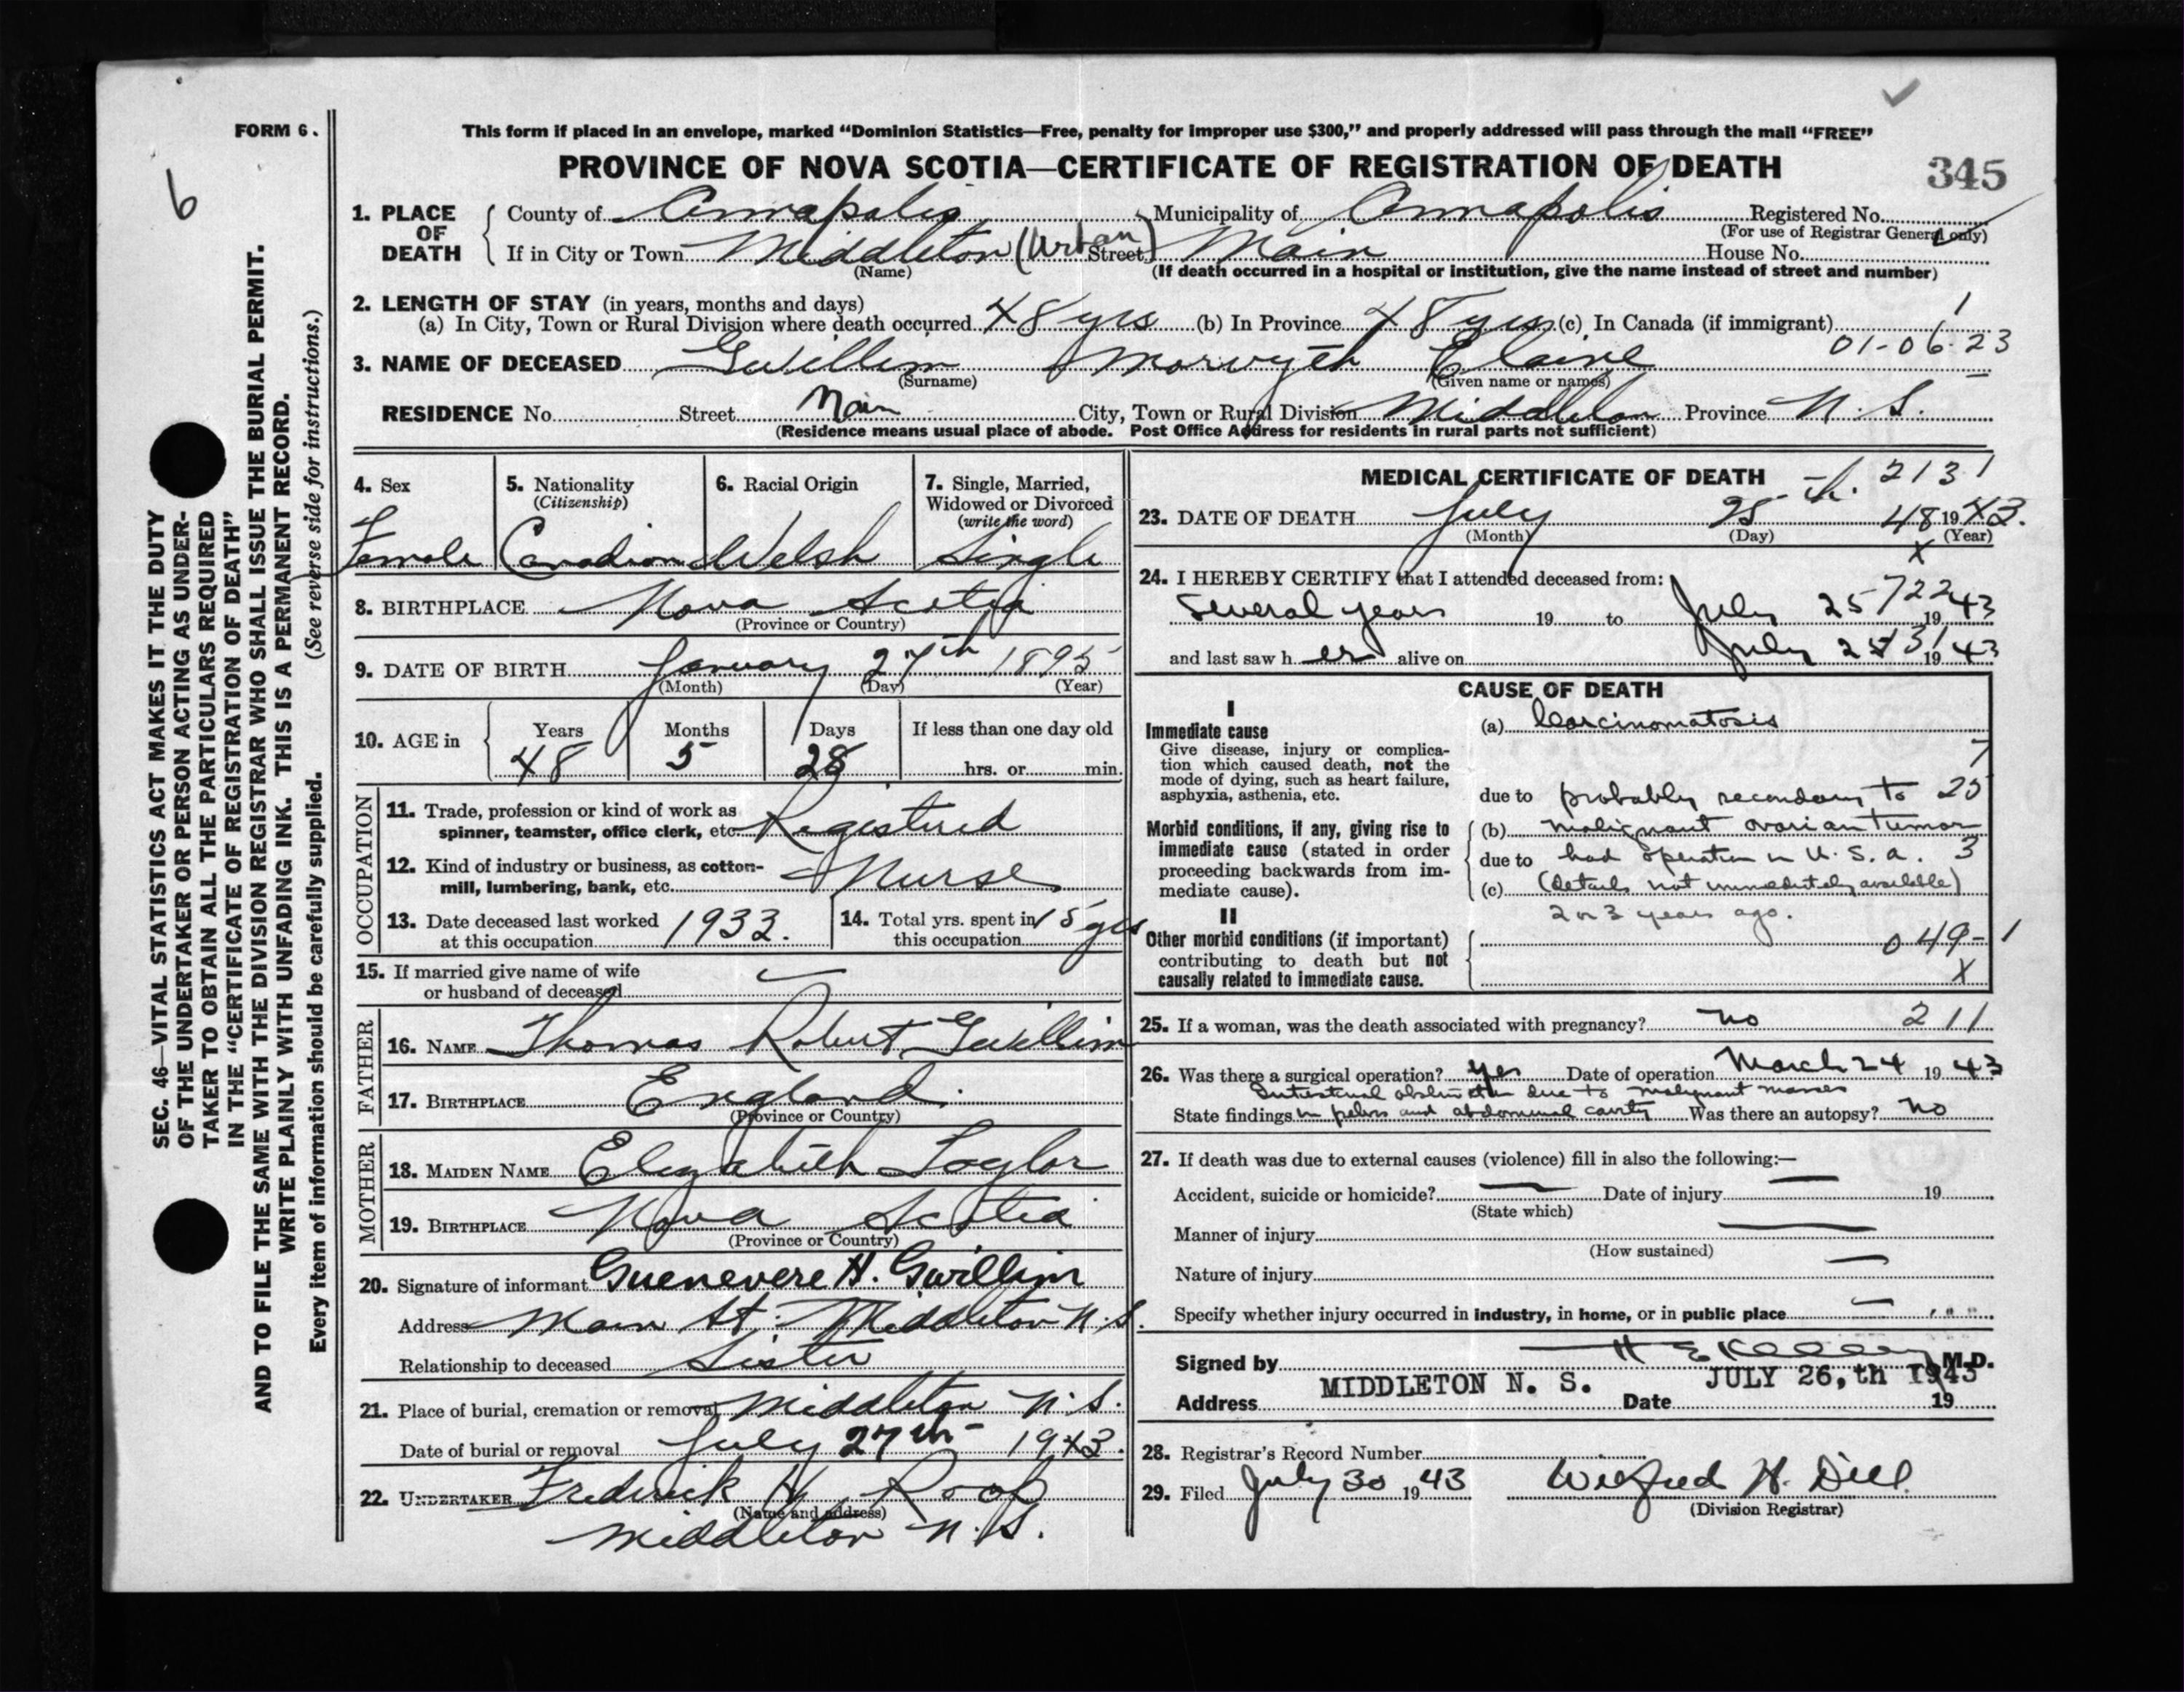 FORM 6.
This form if placed in an envelope, marked “Dominion Statistics—Free, penalty for improper use $300,” and properly addressed will pass through the mail “FREE”
PROVINCE OF NOVA SCOTIA—CERTIFICATE OF REGISTRATION OF DEATH
345
6
SEC. 46—VITAL STATISTICS ACT MAKES IT THE DUTY
OF THE UNDERTAKER OR PERSON ACTING AS UNDER-
TAKER TO OBTAIN ALL THE PARTICULARS REQUIRED
IN THE “CERTIFICATE OF REGISTRATION OF DEATH”
AND TO FILE THE SAME WITH THE DIVISION REGISTRAR WHO SHALL ISSUE THE BURIAL PERMIT.
WRITE PLAINLY WITH UNFADING INK. THIS IS A PERMANENT RECORD.
Every item of information should be carefully supplied. (See reverse side for instructions.)
1. PLACE OF DEATH County of Annapolis Municipality of Annapolis Registered No.
(For use of Registrar General only)
If in City or Town Middleton (Urban) Street Main House No.
(Name) (If death occurred in a hospital or institution, give the name instead of street and number)
2. LENGTH OF STAY (in years, months and days)
(a) In City, Town or Rural Division where death occurred 48 yrs (b) In Province 48 yrs (c) In Canada (if immigrant) 1
01-06-23
3. NAME OF DECEASED Gwillim Morwyth Elaine
(Surname) (Given name or names)
RESIDENCE No. Street Main City, Town or Rural Division Middleton Province N.S.
(Residence means usual place of abode. Post Office Address for residents in rural parts not sufficient)
4. Sex
Female
5. Nationality
(Citizenship)
Canadian
6. Racial Origin
Welsh
7. Single, Married,
Widowed or Divorced
(write the word)
Single
8. BIRTHPLACE Nova Scotia
(Province or Country)
9. DATE OF BIRTH January 27th 1895
(Month) (Day) (Year)
10. AGE in Years Months Days If less than one day old
48 5 28 hrs. or min.
OCCUPATION
11. Trade, profession or kind of work as
spinner, teamster, office clerk, etc. Registered
12. Kind of industry or business, as cotton-
mill, lumbering, bank, etc. Nurse
13. Date deceased last worked
at this occupation 1933.
14. Total yrs. spent in
this occupation 15 yrs
15. If married give name of wife
or husband of deceased
FATHER
16. NAME Thomas Robert Gwillim
17. BIRTHPLACE England.
(Province or Country)
MOTHER
18. MAIDEN NAME Elizabeth Taylor
19. BIRTHPLACE Nova Scotia
(Province or Country)
20. Signature of informant Guenevere H. Gwillim
Address Main St. Middleton N.S.
Relationship to deceased Sister
21. Place of burial, cremation or removal Middleton N.S.
Date of burial or removal July 27th 1943.
22. UNDERTAKER Frederick H. Roop
(Name and address)
Middleton N.S.
MEDICAL CERTIFICATE OF DEATH
2131
23. DATE OF DEATH July 25 48 1943.
(Month) (Day) (Year)
X
24. I HEREBY CERTIFY that I attended deceased from:
Several years 19 to July 25 1943
722
and last saw her alive on July 25 1943
131
CAUSE OF DEATH
I
Immediate cause
Give disease, injury or complica-
tion which caused death, not the
mode of dying, such as heart failure,
asphyxia, asthenia, etc.
(a) Carcinomatosis
7
due to probably secondary to 25
Morbid conditions, if any, giving rise to
immediate cause (stated in order
proceeding backwards from im-
mediate cause).
(b) malignant ovarian tumor
due to had operation in U.S.A. 3
(c) (details not immediately available)
2 or 3 years ago.
II
Other morbid conditions (if important)
contributing to death but not
causally related to immediate cause.
049-1
X
25. If a woman, was the death associated with pregnancy? no 211
26. Was there a surgical operation? yes Date of operation March 24 1943
Intestinal obstruction due to malignant masses
State findings in pelvis and abdominal cavity Was there an autopsy? No
27. If death was due to external causes (violence) fill in also the following:—
Accident, suicide or homicide? Date of injury 19
(State which)
Manner of injury
(How sustained)
Nature of injury
Specify whether injury occurred in industry, in home, or in public place
Signed by H E Kelley M.D.
Address MIDDLETON N. S. Date JULY 26,th 1943
19
28. Registrar's Record Number
29. Filed July 30 1943 Wilfred H. Dill.
(Division Registrar)